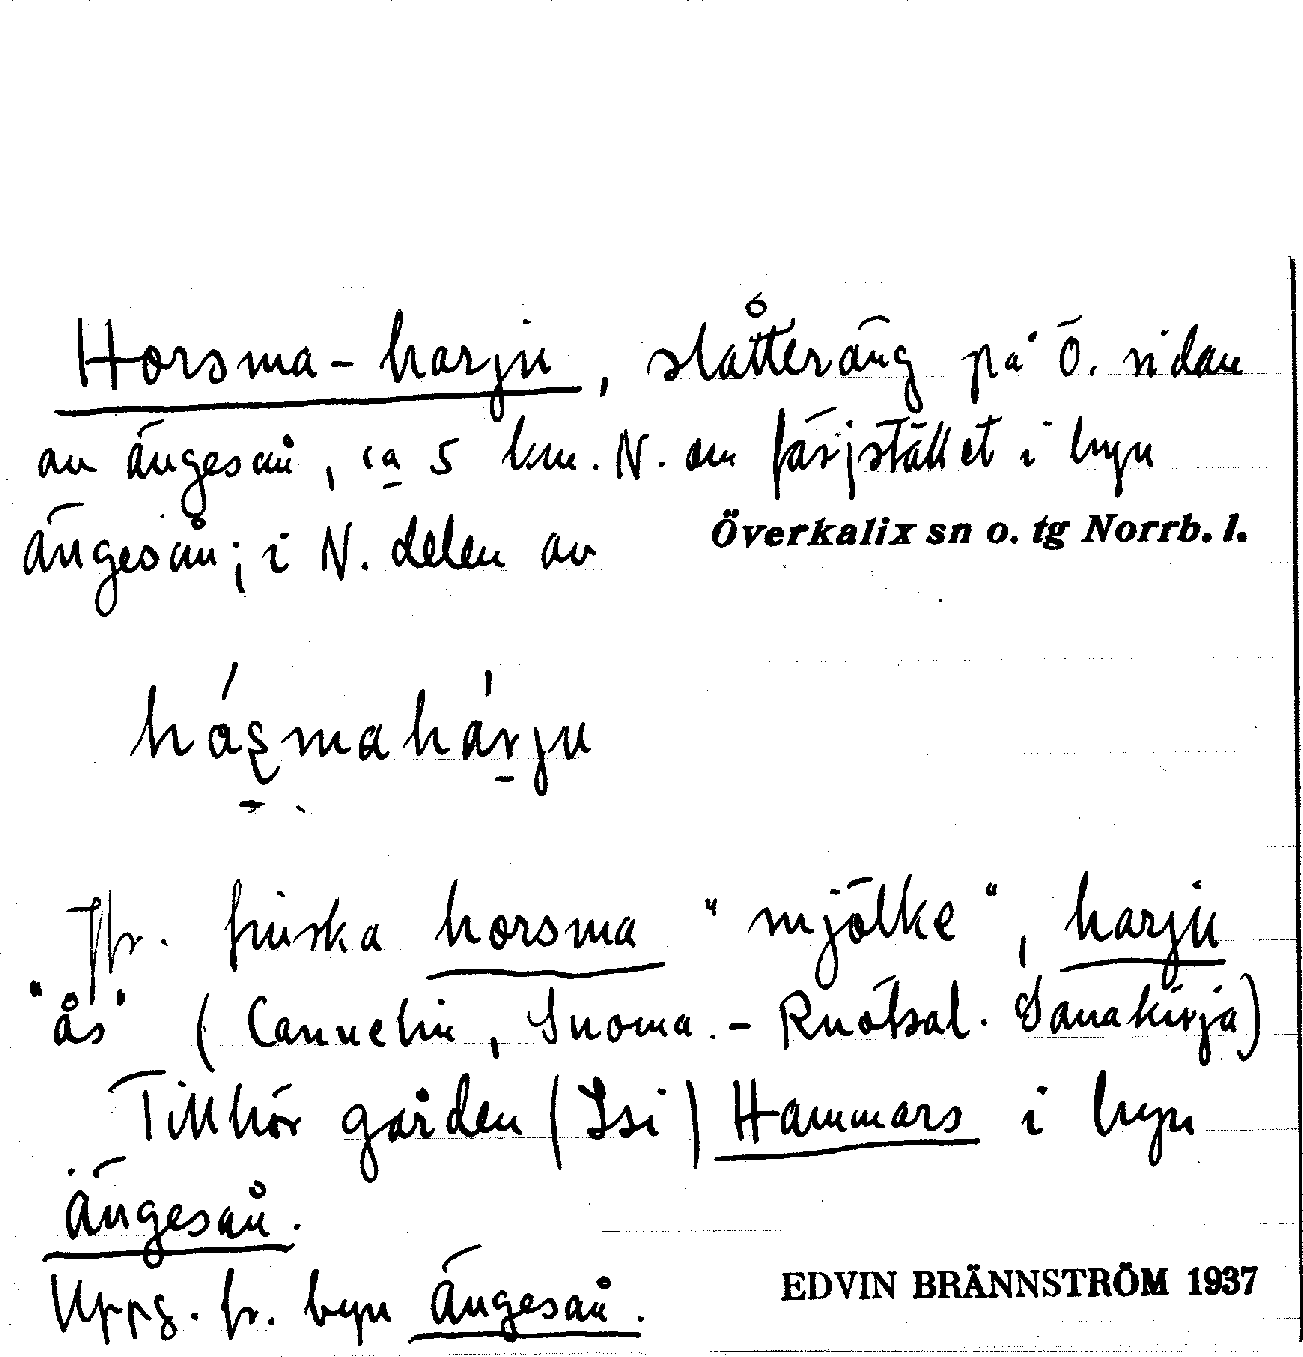 Horsma-harju, slåtteräng på Ö. sidan
av Ängesån, ca 5 km. N. om färjstället i byn
Ängesån; i N. delen av Överkalix sn o. tg Norrb. l.
hás̨maháṟju
Jfr. finska horsma "mjölke", harju
"ås" (Cannelin, Suoma.-Ruotsal. Sanakirja)
Tillhör gården (Isi) Hammars i byn
Ängesån.
Uppg. fr. byn Ängesån. EDVIN BRÄNNSTRÖM 1937